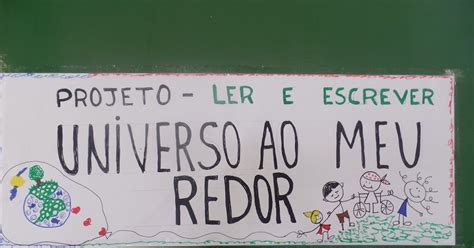 PROJETO - LER E ESCREVER
UNIVERSO AO MEU
REDOR